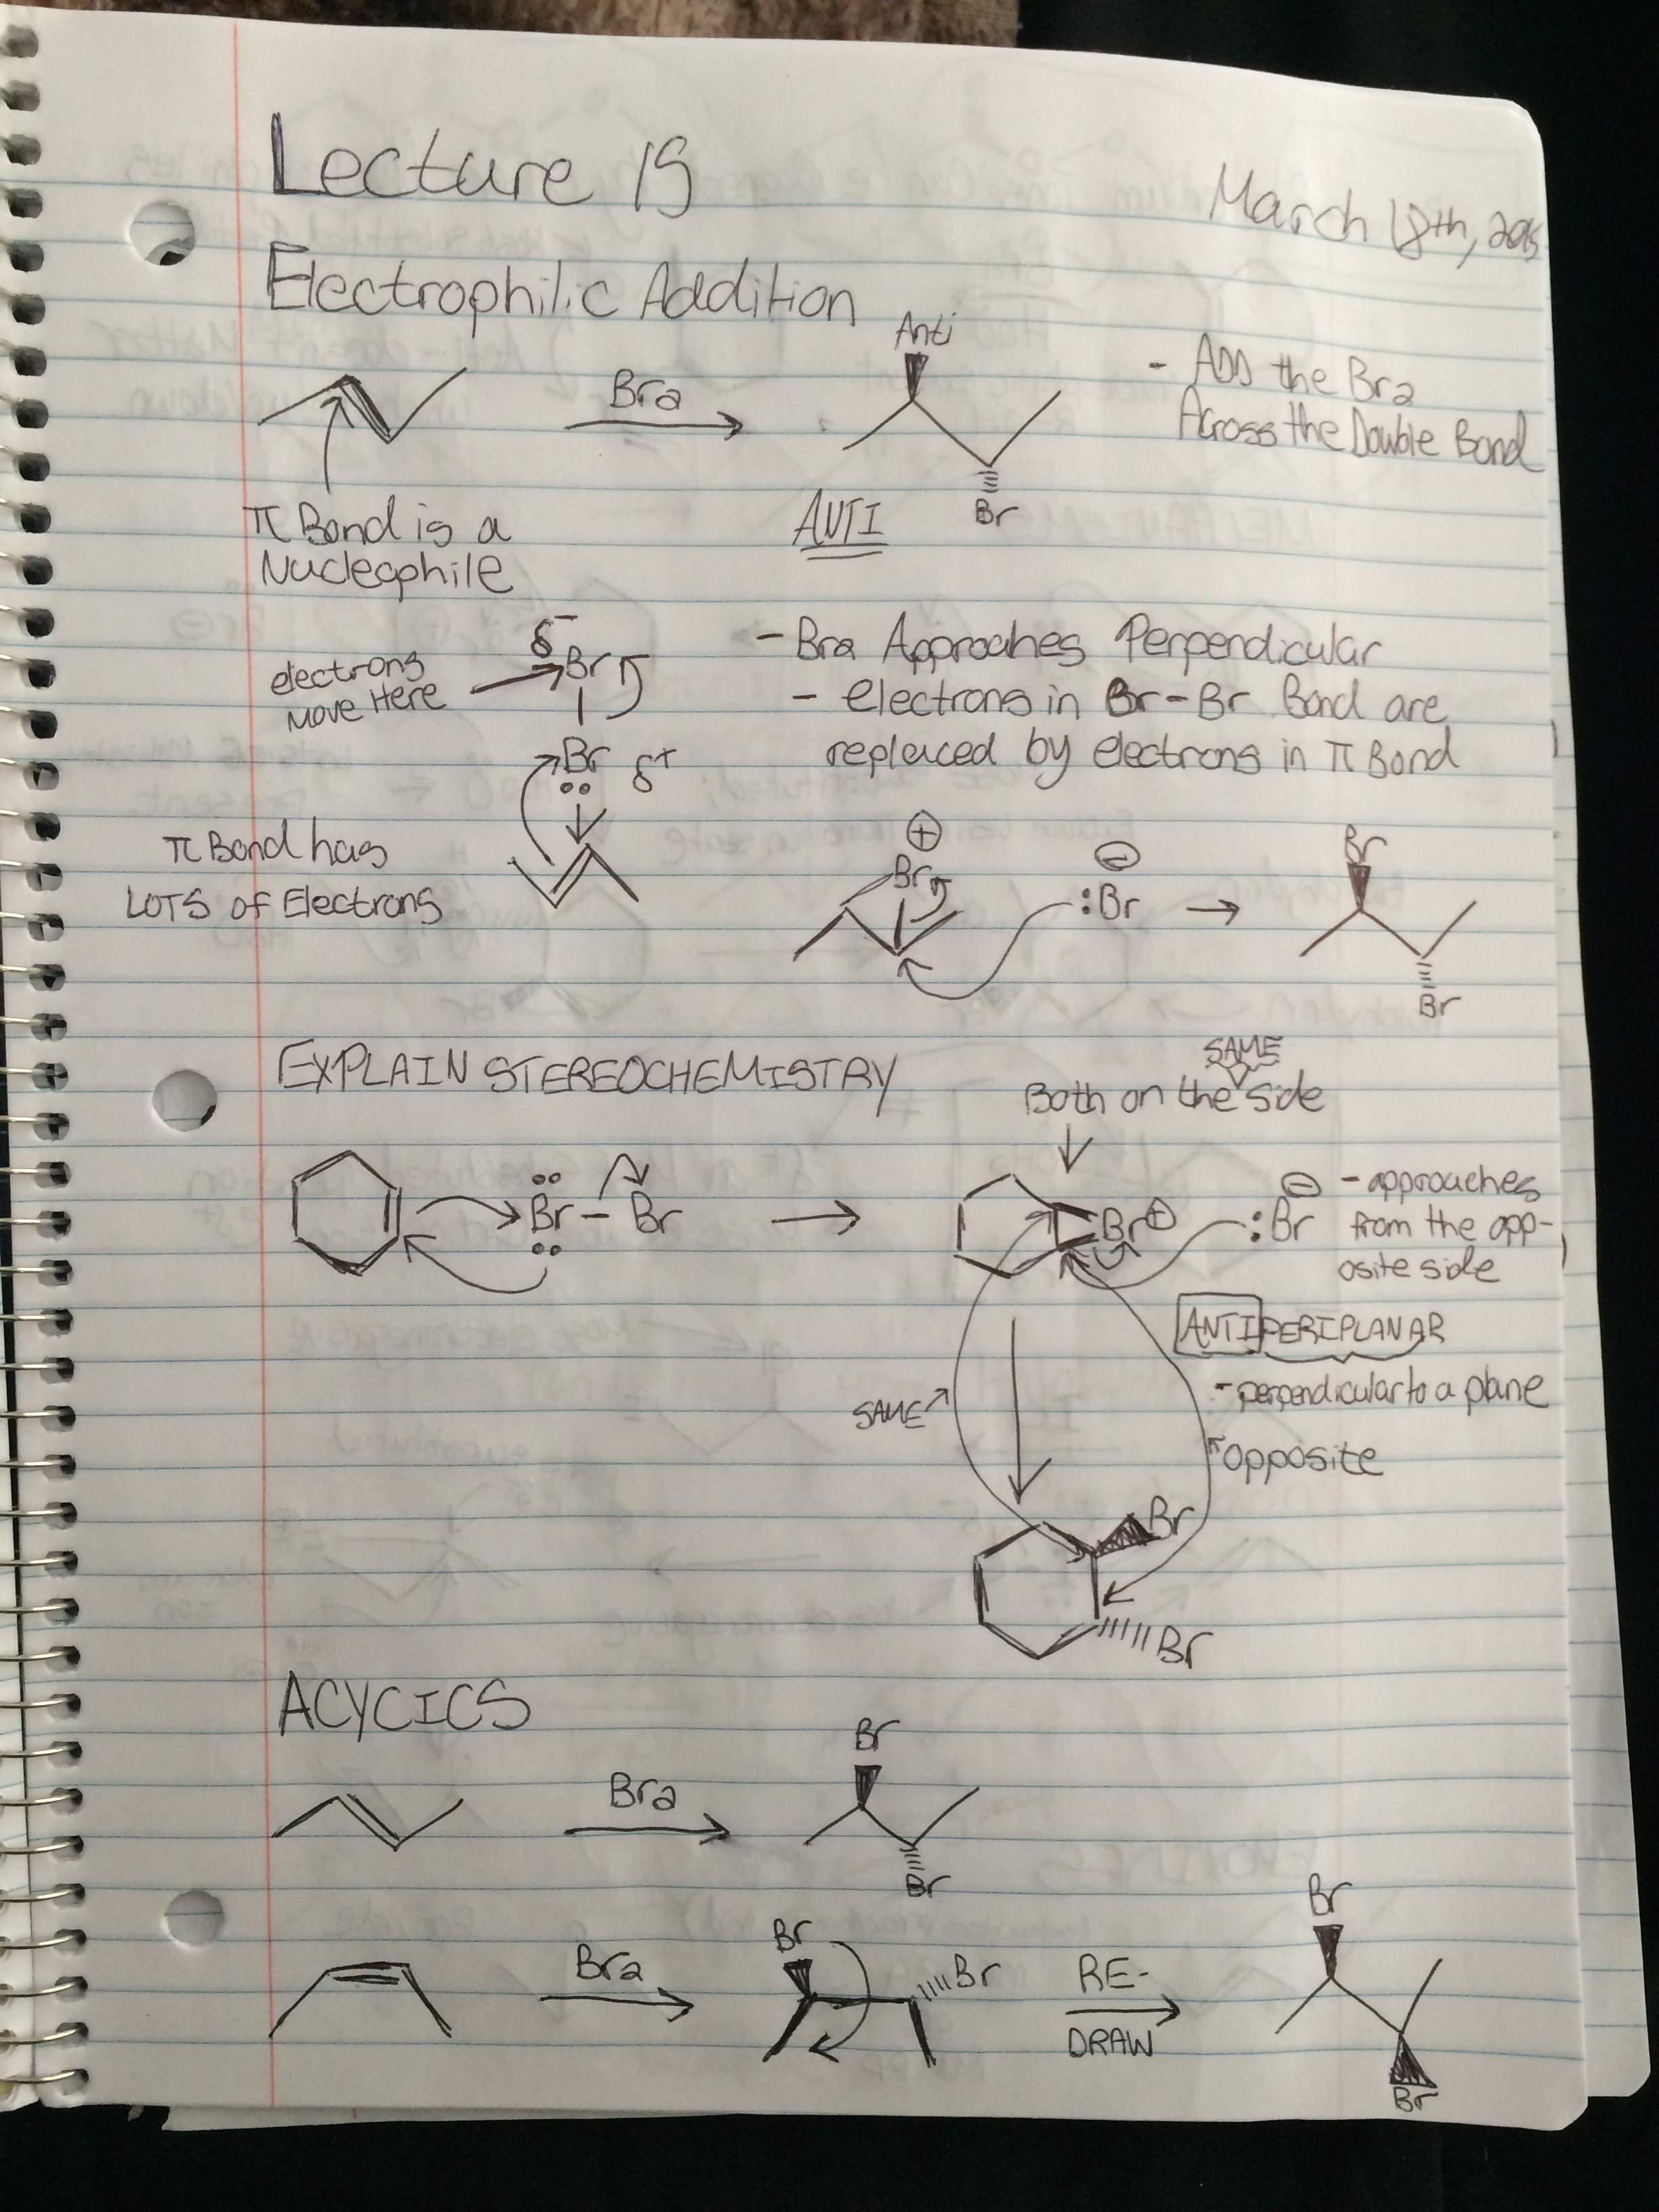 Lecture 15
March 18th, 2015
Electrophilic Addition
Br2
Anti
Br
ANTI
- ADD the Br2
Across the Double Bond
π Bond is a
Nucleophile
electrons
Move Here
δ-
Br
Br δ+
- Br2 Approaches Perpendicular
- electrons in Br-Br Bond are
replaced by electrons in π Bond
π Bond has
LOTS of Electrons
⊕
Br
⊖
:Br
Br
Br
EXPLAIN STEREOCHEMISTRY
SAME
Both on the side
Br - Br
Br⊕
⊖
:Br
- approaches
from the opp-
osite side
ANTIPERIPLANAR
- perpendicular to a plane
SAME
opposite
Br
Br
ACYCICS
Br2
Br
Br
Br2
Br
Br
RE-
DRAW
Br
Br